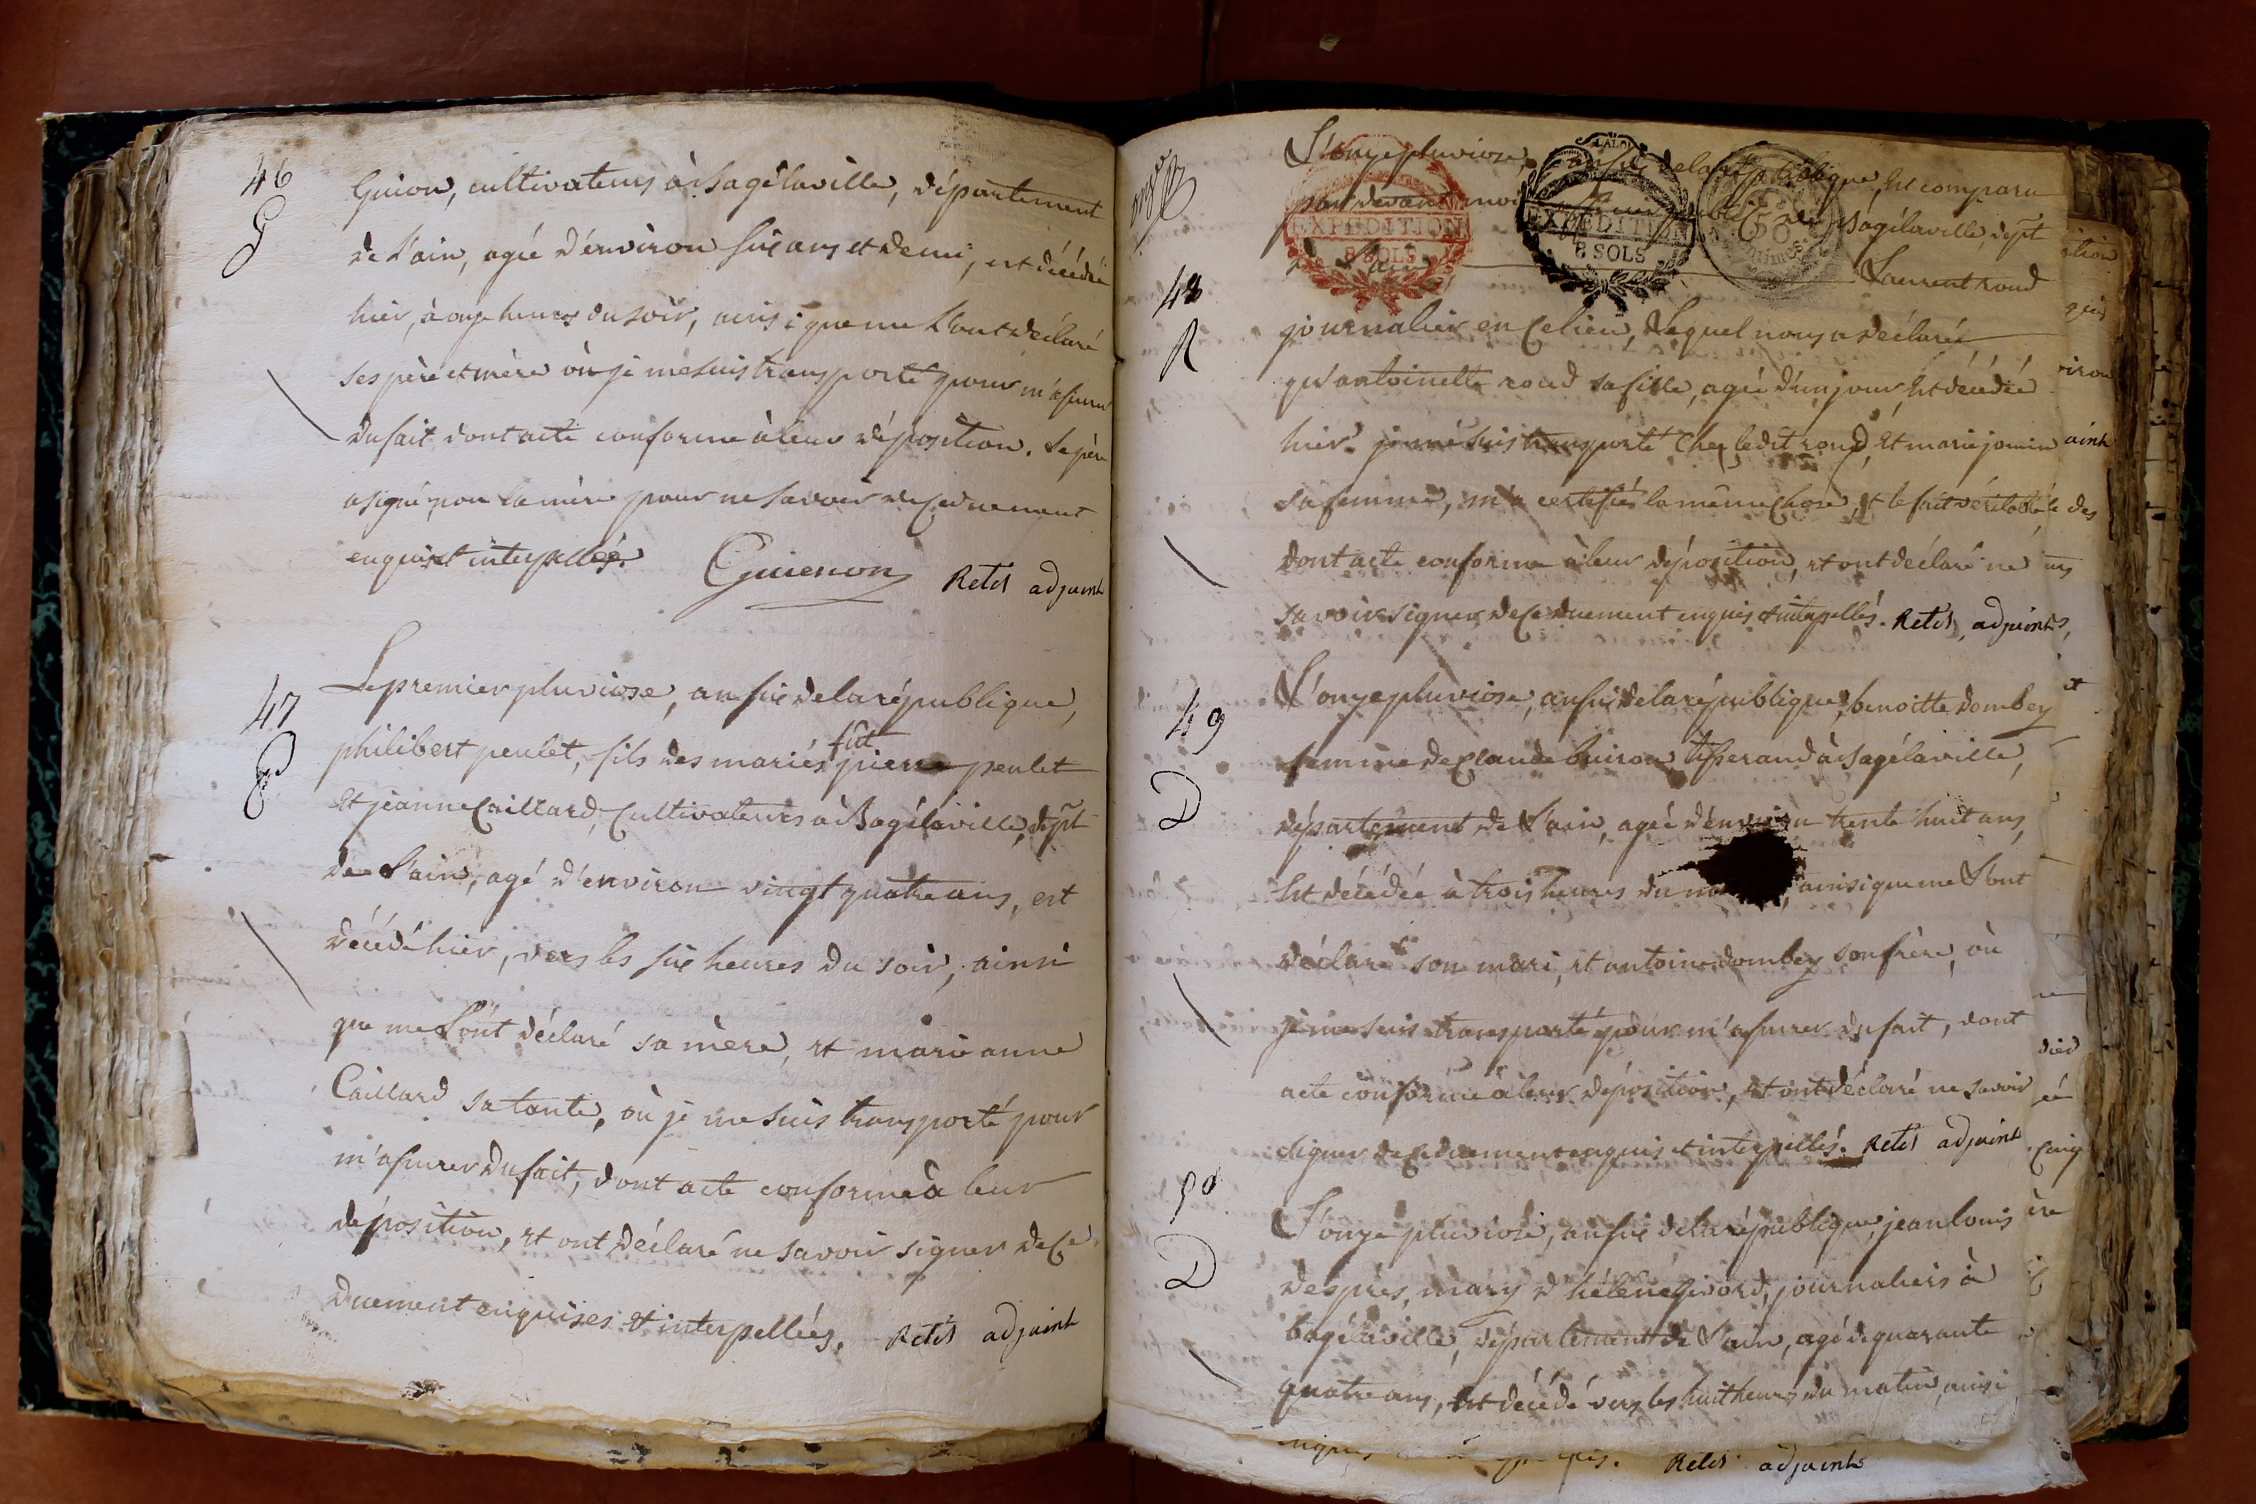 46
G
Guion, cultivateurs à Bagélaville, département
de l'ain, agée d'environ six ans et demi, est décédée
hier, à onze heures du soir, ainsi que me l'ont déclaré
ses père et mère où je me suis transporté pour m'assurer
du fait dont acte conforme à leur déposition. Le père
a signé, non la mère pour ne savoir de ce duement
enquise et interpellée.
Guienon
Retis adjoint
47
P
Le premier pluviose, an six de la république,
philibert peulet, fils des mariés fût pierre peulet
et jeanne Caillard, Cultivateurs à Bagélaville, dept
de l'ain, agé d'environ vingt quatre ans, est
décédé hier, vers les six heures du soir, ainsi
que me l'ont déclaré sa mère, et marie anne
Caillard sa tante, où je me suis transporté pour
m'assurer du fait, dont acte conforme à leur
déposition, et ont déclaré ne savoir signer de ce
duement enquises et interpellées. Retis adjoint
L'onze pluviose, an six de la république, Est comparu
par devant moi Bagélaville, dept
EXPEDITION
8 SOLS
EXPEDITION
8 SOLS
50
Laurent roud
48
R
journalier en Ce lieu, Lequel nous a déclaré
qu'antoinette roud sa fille, agée d'un jour, Est décédée
hier. je me suis transporté Chez ledit roud, Et marie jomin
sa femme, m'a certifié la même Chose, et le fait véritable
dont acte conforme à leur déposition, et ont déclaré ne
savoir signer de Ce duement enquis et interpellés. Retis, adjoint
49
D
L'onze pluviose, an six de la république, benoitte dombey
femme de Claude buiron tisserand à Bagélaville,
département de l'ain, agée d'environ trente huit ans,
Est décédée à trois heures du ainsi que me l'ont
déclaré son mari, et antoine dombey son frère, où
je me suis transporté pour m'assurer du fait, dont
acte conforme à leur déposition, et ont déclaré ne savoir
signer de Ce duement enquis et interpellés. Retis adjoint
50
D
L'onze pluviose, an six de la république, jean louis
desprès, mary d'hélène journaliers à
bagélaville, département de l'ain, agé de quarante
quatre ans, Est décédé vers les huit heures du matin, ainsi
Retis adjoint